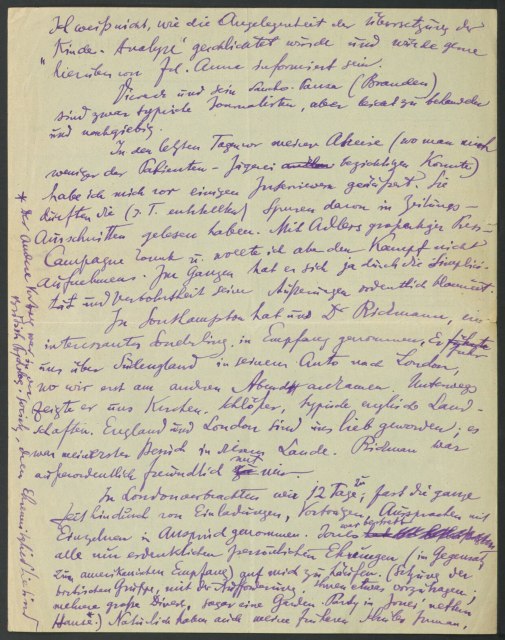 Ich weiß nicht, wie die Angelegenheit der Übersetzung der
"Kinder-Analyse" geschlichtet wurde und würde gerne
hierüber von Frl. Anna informiert sein.
Viereck und sein Sancho-Pansa (Branden)
sind zwar typische Journalisten, aber leicht zu behandeln
und nachgiebig.
In den letzten Tagen vor meiner Abreise (wo man mich
weniger der Patienten-Jägerei bezichtigen konnte)
habe ich mich vor einigen Interviewern geäußert. Sie
dürften die (z. T. entstellten) Spuren davon in Zeitungs-
Ausschnitten gelesen haben. Mit Adlers großartiger Press-
Campagne konnte u. wollte ich aber den Kampf nicht
aufnehmen. Im Ganzen hat er sich ja durch die Simplici-
tät und Verbohrtheit seiner Äußerungen ordentlich blamiert
In Southampton hat uns Dr Rickmann, ein
interessanter Sonderling, in Empfang genommen, Er fuhr
uns über Südengland in seinem Auto nach London,
wo wir erst am anderen Abend ankamen. Unterwegs
zeigte er uns Kirchen, Schlösser, typische englische Land-
schaften. England und London sind uns lieb geworden; es
war mein erster Besuch in diesem Lande. Rickman war
außerordentlich freundlich mit mir.
In London verbrachten wir 12 Tage, fast die ganze
Zeit hindurch von Einladungen, Vorträgen, Aussprachen mit
Einzelnen in Anspruch genommen. Jones war bestrebt
alle nur erdenklichen persönlichen Ehrungen (im Gegensatz
zum amerikanischen Empfang) auf mich zu häufen. (Sitzung der
britischen Gruppe, mit der Aufforderung, ihnen etwas vorzutragen,
mehrere große Diners, sogar eine Garden Party in Jones' nettem
Hause.) Natürlich haben auch meine früheren Schüler
* Der andere Vortrag war in der
British Psycholog. Society, deren Ehrenmitglied Sie sind